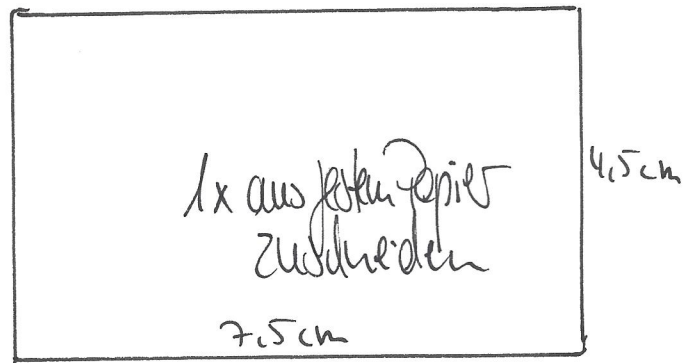 1x aus festem Papier
zuschneiden
4,5cm
7,5cm